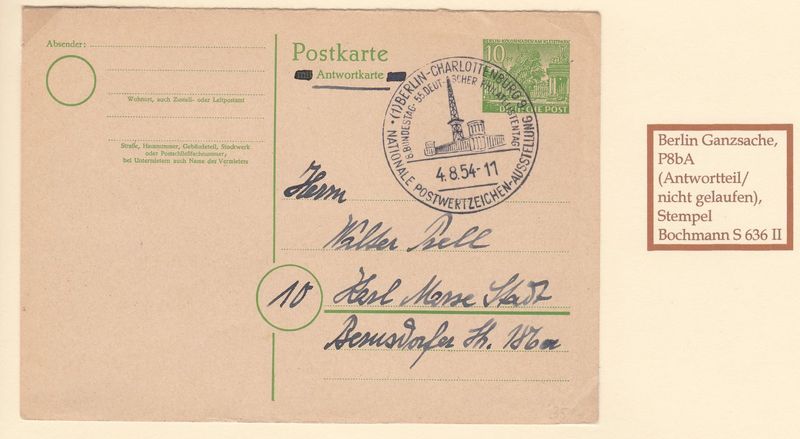 Absender:
Wohnort, auch Zustell- oder Leitpostamt
Straße, Hausnummer, Gebäudeteil, Stockwerk
oder Postschließfachnummer,
bei Untermietern auch Name des Vermieters
Postkarte
Antwortkarte
10
DEUTSCHE POST
(1) BERLIN-CHARLOTTENBURG 9
8. BUNDESTAG · 55. DEUTSCHER PHILATELISTENTAG
NATIONALE POSTWERTZEICHEN-AUSSTELLUNG
4.8.54-11
Herrn
Walter
10 Karl Marx Stadt
Bernsdorfer Str.
Berlin Ganzsache,
P8bA
(Antwortteil/
nicht gelaufen),
Stempel
Bochmann S 636 II